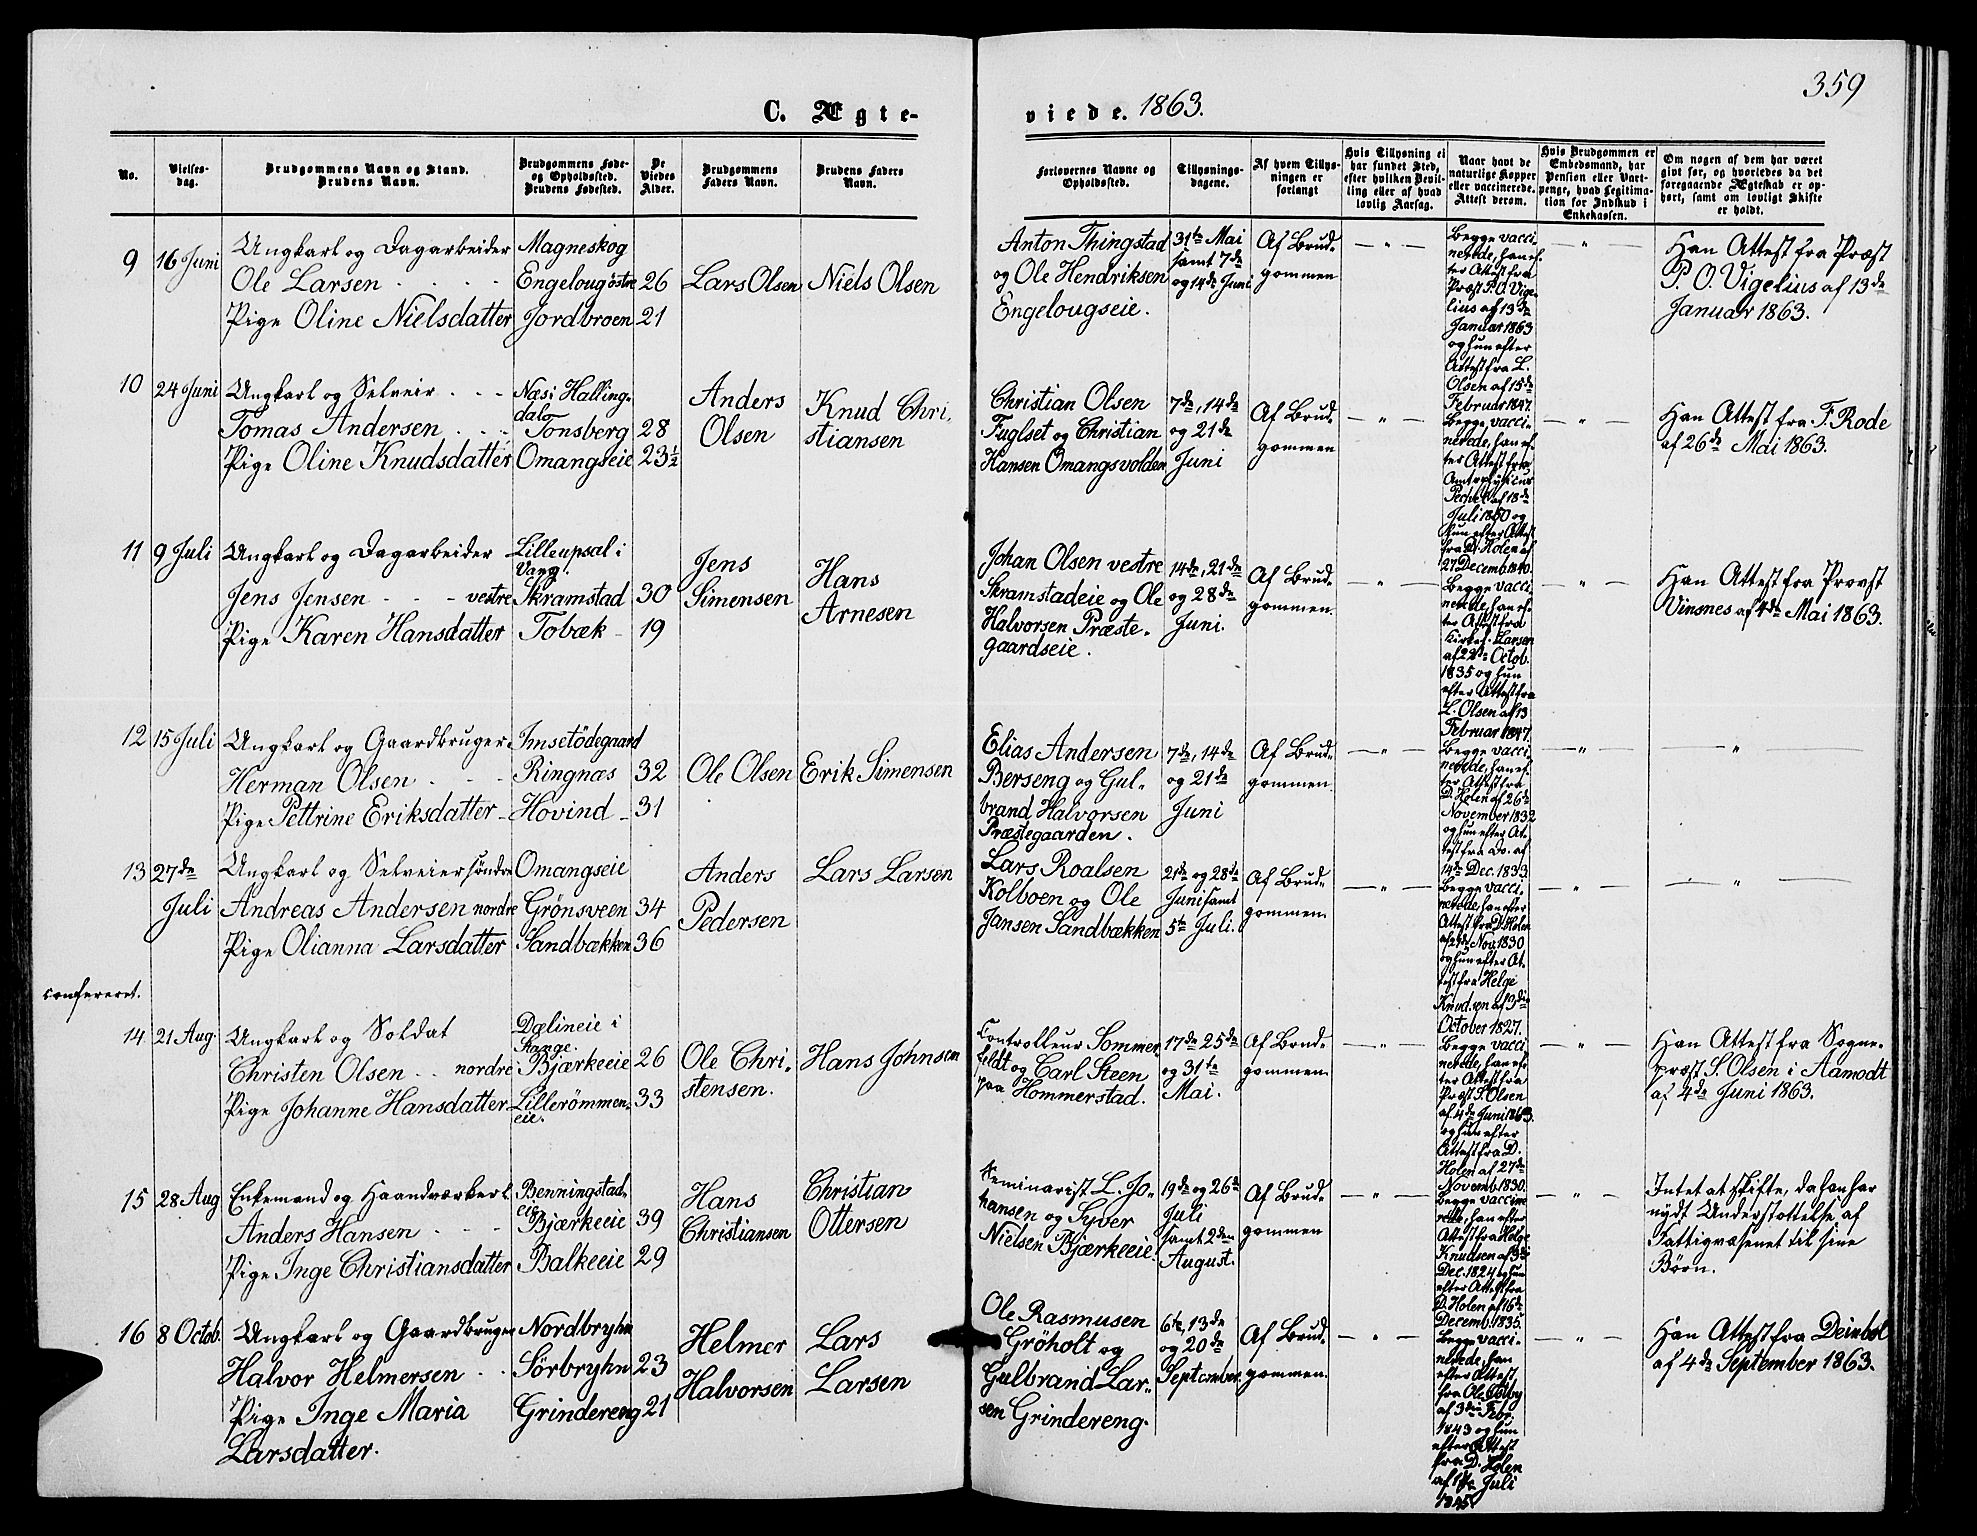 359
C. Ægte-
viede. 1863.
No.
Vielses-
dag.
Brudgommens Navn og Stand.
Brudens Navn.
Brudgommens Føde-
og Opholdssted.
Brudens Fødested.
De
Viedes
Alder.
Brudgommens
Faders Navn.
Brudens Faders
Navn.
Forlovernes Navne og
Opholdssted.
Tillysnings-
dagene.
Af hvem Tillys-
ningen er
forlangt
Hvis Tillysning ei
har fundet Sted,
efter hvilken Bevil-
ling eller af hvad
lovlig Aarsag.
Naar havt de
naturlige Kopper
eller vaccinerede.
Attest derom.
Hvis Brudgommen er
Embedsmand, har
Pension eller Vart-
penge, hvad Legitima-
tion for Indskud i
Enkekassen.
Om nogen af dem har været
givt før, og hvorledes da det
foregaaende Ægteskab er op-
hørt, samt om lovligt Skifte
er holdt.
9
16 Juni
Ungkarl og Dagarbeider
Ole Larsen
Pige Oline Nielsdatter
Magneskog
Engelougøstre
Jordbroen
26
21
Lars Olsen
Niels Olsen
Anton Thingstad
og Ole Hendriksen
Engelougseie.
31te Mai
samt 7de
og 14de Juni
Af Brud-
gommen
— " —
Begge vacci-
nerede, han ef-
ter Attest fra
Præst P. O. Vige-
lius af 13de
Januar 1863
og hun efter
Attest fra L.
Olsen af 15de
Februar 1847.
— " —
Han Attest fra Præst
P. O. Vigelius af 13de
Januar 1863.
10
24 Juni
Ungkarl og Selveier
Tomas Andersen
Pige Oline Knudsdatter
Næs i Halling-
dal
Tonsberg
Omangseie
28
23½
Anders
Olsen
Knud Chri-
stiansen
Christian Olsen
Fuglset og Christian
Hansen Omangsvolden
7de, 14de
og 21de
Juni
Af Brud-
gommen
— " —
Begge vacci-
nerede, han ef-
ter Attest fra
Amtsphysicus
af 18de
Juli 1860 og
hun efter Attest
fra D. Holen af
27 Decemb. 1840.
— " —
Han Attest fra F. Rode
af 26de Mai 1863.
11
9 Juli
Ungkarl og Dagarbeider
Jens Jensen - - - vestre
Pige Karen Hansdatter
Lilleupsal i
Vang.
Skramstad
Tobæk
30
19
Jens
Simensen
Hans
Arnesen
Johan Olsen vestre
Skramstadeie og Ole
Halvorsen Præste-
gaardseie.
14de, 21de
og 28de
Juni.
Af Brud-
gommen.
— " —
Begge vacci-
nerede, han ef-
ter Attest fra
Kirkes. Larsen
af 22de Octob.
1835 og hun
efter Attest fra
L. Olsen af 13
Februar 1847.
— " —
Han Attest fra Provst
Vinsnes af 4de Mai 1863.
12
15 Juli
Ungkarl og Gaardbruger
Herman Olsen
Pige Pettrine Eriksdatter
Imsetödegaard
Ringnæs
Hovind
32
31
Ole Olsen
Erik Simensen
Elias Andersen
Berseng og Gul-
brand Halvorsen
Præstegaarden.
7de, 14de
og 21de
Juni
Af Brud-
gommen
— " —
Begge vacci-
nerede, han ef-
ter Attest fra
D. Holen af 26de
November 1832
og hun efter At-
test fra Do. af
14de Dec. 1833
— " —
— " —
13
27de
Juli
Ungkarl og Selveier søndre
Andreas Andersen nordre
Pige Olianna Larsdatter
Omangseie
Grönsveen
Sandbækken
34
36
Anders
Pedersen
Lars Larsen
Lars Roalsen
Kolboen og Ole
Jansen Sandbækken
21de og 28de
Juni samt
5te Juli.
Af Brud-
gommen.
— " —
Begge vacci-
nerede, han efter
Attest fra D. Holen
Nov. 1830
og hun efter At-
test fra Helge
Knudsen af 3die
October 1827.
— " —
— " —
confereret.
14
21 Aug.
Ungkarl og Soldat
Christen Olsen . . nordre
Pige Johanne Hansdatter
Dælineie i
Stange.
Bjærkeeie
Lillerömmen-
eie.
26
33
Ole Chri-
stensen.
Hans Johnsen
Controlleur Sommer-
feldt og Carl Steen
paa Hommerstad.
17de 25de
og 31te
Mai.
Af Brud-
gommen.
— " —
Begge vacci-
nerede, han ef-
ter Attest fra
Præst S. Olsen
af 4de Juni 1863.
og hun efter
Attest fra D.
Holen af 27de
Novemb. 1830.
— " —
Han Attest fra Sogne-
præst S. Olsen i Aamodt
af 4de Juni 1863.
15
28 Aug
Enkemand og Haandværkerk.
Anders Hansen
Pige Inge Christiansdatter
Benningstad-
eie
Bjærkeeie
Balkeeie
39
29
Hans
Christiansen
Christian
Ottersen
Seminarist L. Jo-
hansen og Syver
Nielsen Bjærkeeie.
19de og 26de
Juli
samt 2den
August.
Af Brud-
gommen
— " —
Begge vaccine-
rede, han efter
Attest fra Helge
Knudsen af 3die
Dec. 1824 og hun
efter Attest fra
D. Holen af 16de
Decemb. 1835.
— " —
Intet at skifte, da han har
nydt Understøttelse af
Fattigvæsenet til sine
Børn.
16
8 Octob.
Ungkarl og Gaardbruger
Halvor Helmersen
Pige Inge Maria
Larsdatter.
Nordbryhn
Sörbryhn
Grindereng
23
21
Helmer
Halvorsen
Lars
Larsen
Ole Rasmusen
Gröholt og
Gulbrand Lar-
sen Grindereng.
6te, 13de
og 20de
September.
Af Brud-
gommen.
— " —
Begge vacci-
nerede, han
efter Attest
fra Ole
af 3die Febr.
1843 og hun
efter Attest
fra D. Holen
af Juli
1845.
— " —
Han Attest fra Deinbol
af 4de September 1863.